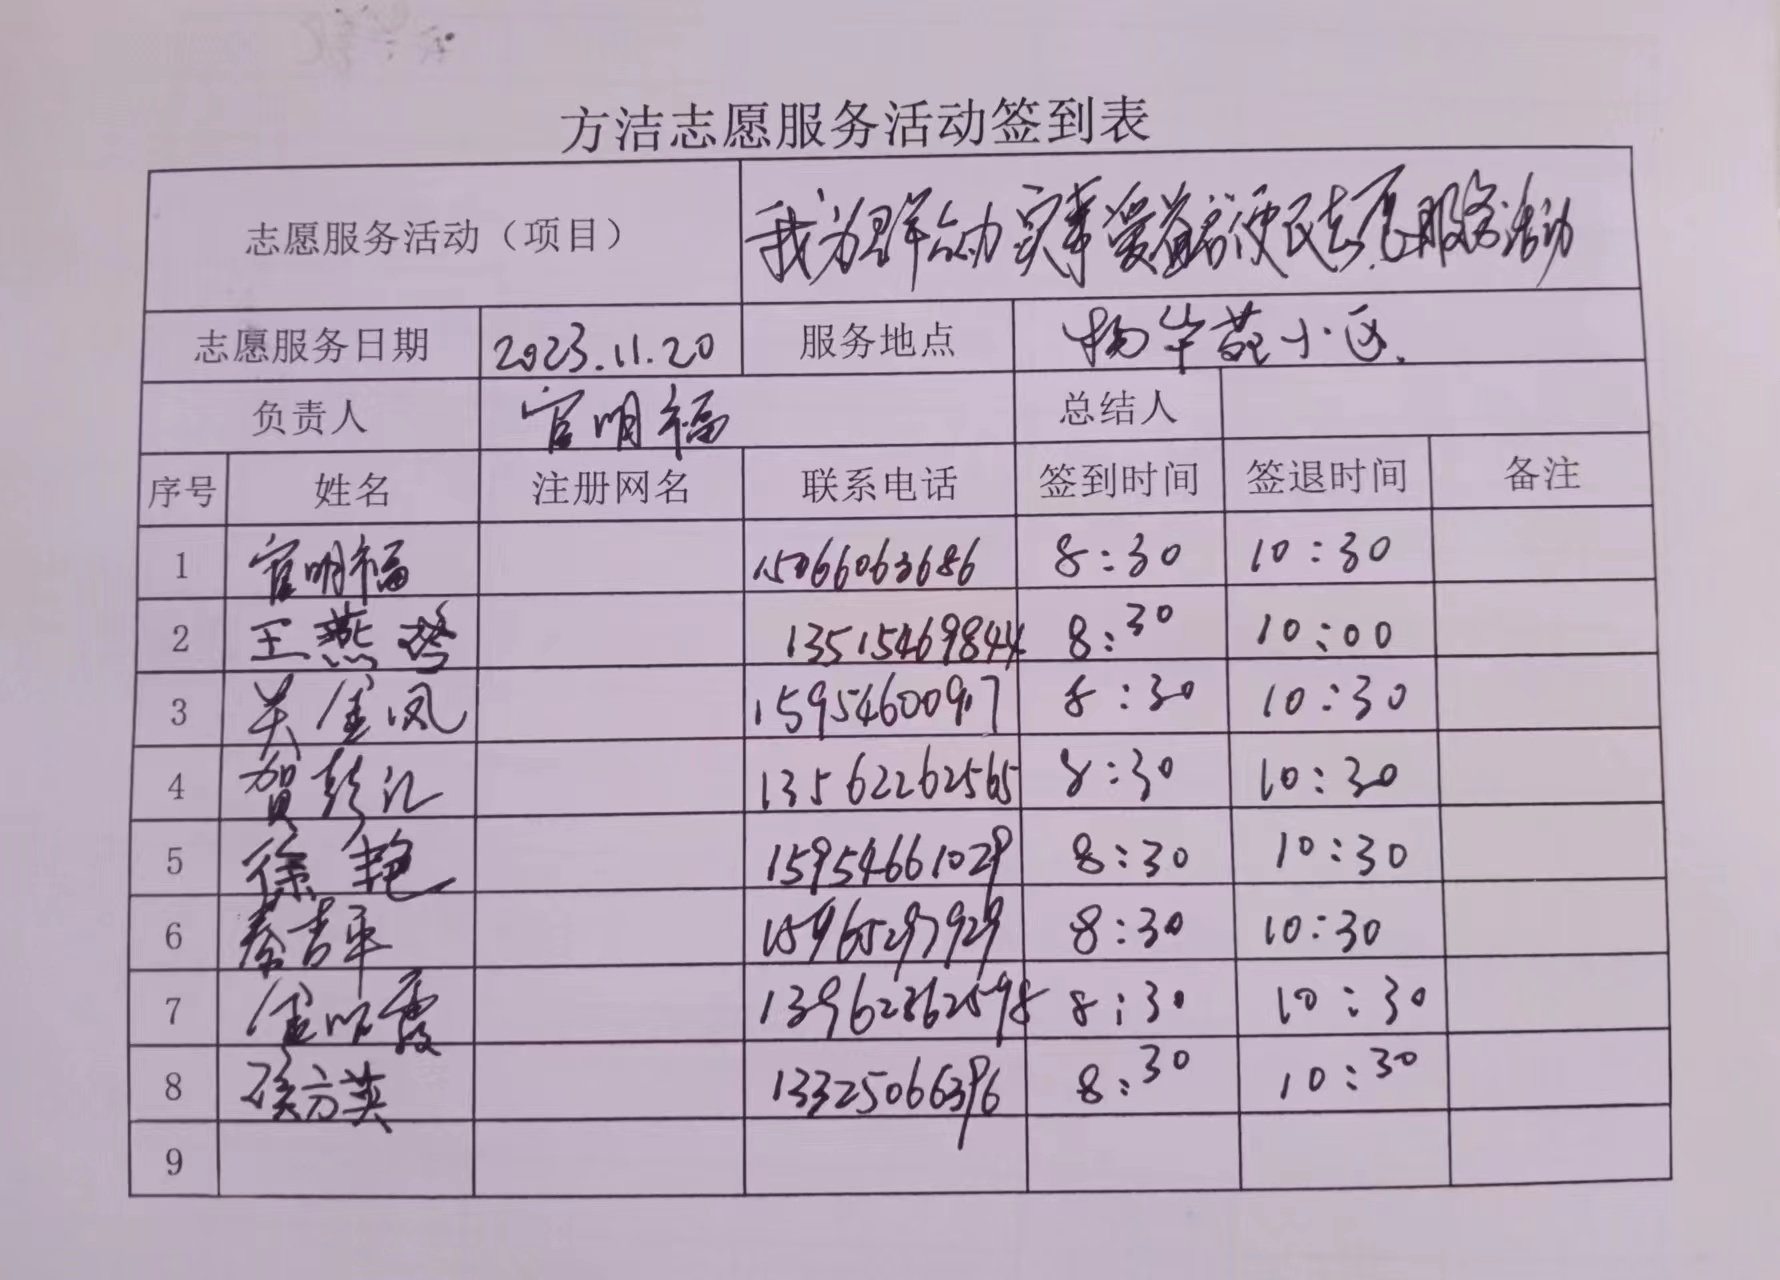 方洁志愿服务活动签到表
志愿服务活动（项目） 我为群众办实事爱首家便民志愿服务活动
志愿服务日期 2023.11.20 服务地点 杨华苑小区.
负责人 官明福 总结人
序号 姓名 注册网名 联系电话 签到时间 签退时间 备注
1 官明福 15066063686 8:30 10:30
2 王燕 13515469844 8:30 10:00
3 关金凤 15954600917 8:30 10:30
4 贺彭江 13562262565 8:30 10:30
5 徐艳 15954661029 8:30 10:30
6 秦吉平 15965297929 8:30 10:30
7 金明霞 13962362598 8:30 10:30
8 方英 13325066396 8:30 10:30
9